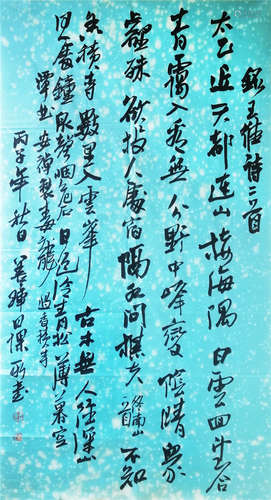 錄王維詩二首
太乙近天都連山接海隅白雲回望合
青靄入看無分野中峰變陰晴眾
壑殊欲投人處宿隔水問樵夫終南山一首不知
香積寺數里入雲峰古木無人徑深山
何處鐘泉聲咽危石日色冷青松薄暮空
潭曲安禪制毒龍過香積寺
丙子年秋日